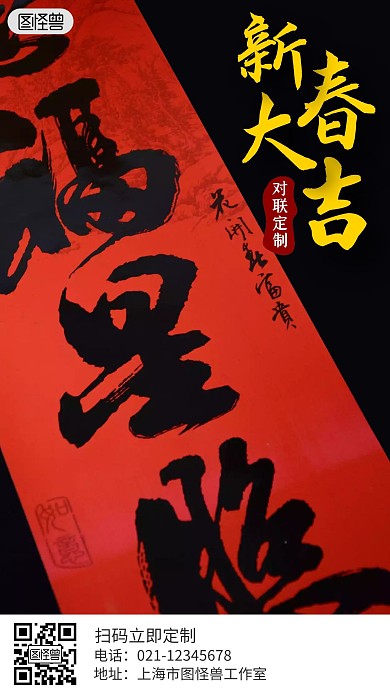 图怪兽
新春
大吉
对联定制
福星照
花開春富貴
如意
图怪兽
扫码立即定制
电话：021-12345678
地址：上海市图怪兽工作室